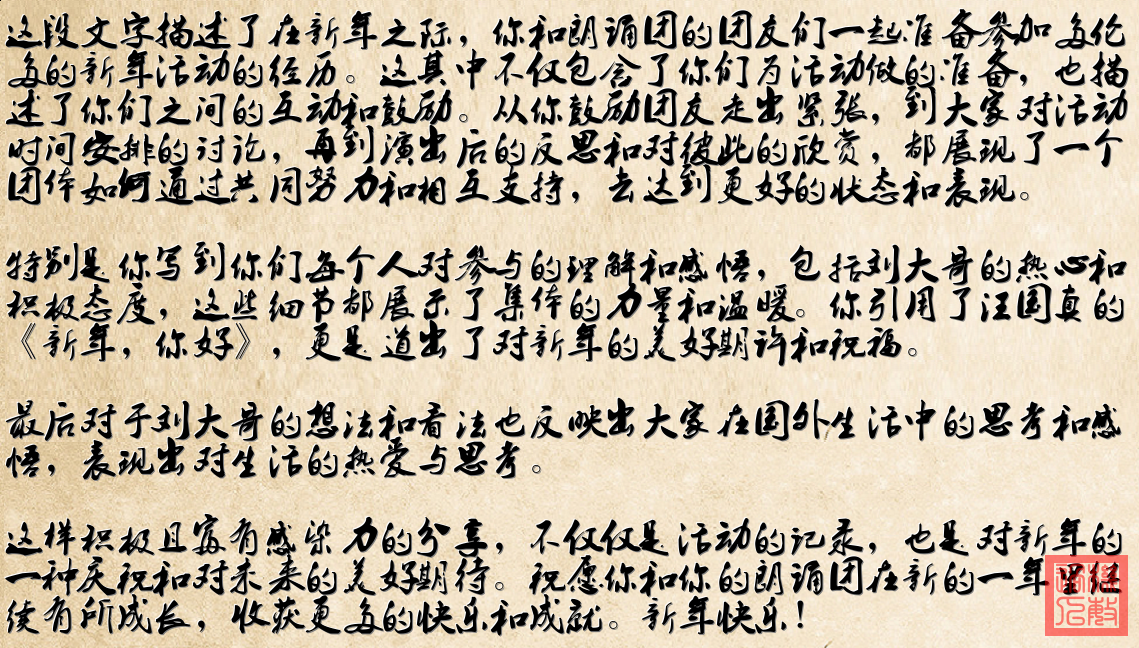 这段文字描述了在新年之际，你和朗诵团的团友们一起准备参加多伦
多的新年活动的经历。这其中不仅包含了你们为活动做的准备，也描
述了你们之间的互动和鼓励。从你鼓励团友走出紧张，到大家对活动
时间安排的讨论，再到演出后的反思和对彼此的欣赏，都展现了一个
团体如何通过共同努力和相互支持，去达到更好的状态和表现。
特别是你写到你们每个人对参与的理解和感悟，包括刘大哥的热心和
积极态度，这些细节都展示了集体的力量和温暖。你引用了汪国真的
《新年，你好》，更是道出了对新年的美好期许和祝福。
最后对于刘大哥的想法和看法也反映出大家在国外生活中的思考和感
悟，表现出对生活的热爱与思考。
这样积极且富有感染力的分享，不仅仅是活动的记录，也是对新年的
一种庆祝和对未来的美好期待。祝愿你和你的朗诵团在新的一年里继
续有所成长，收获更多的快乐和成就。新年快乐！